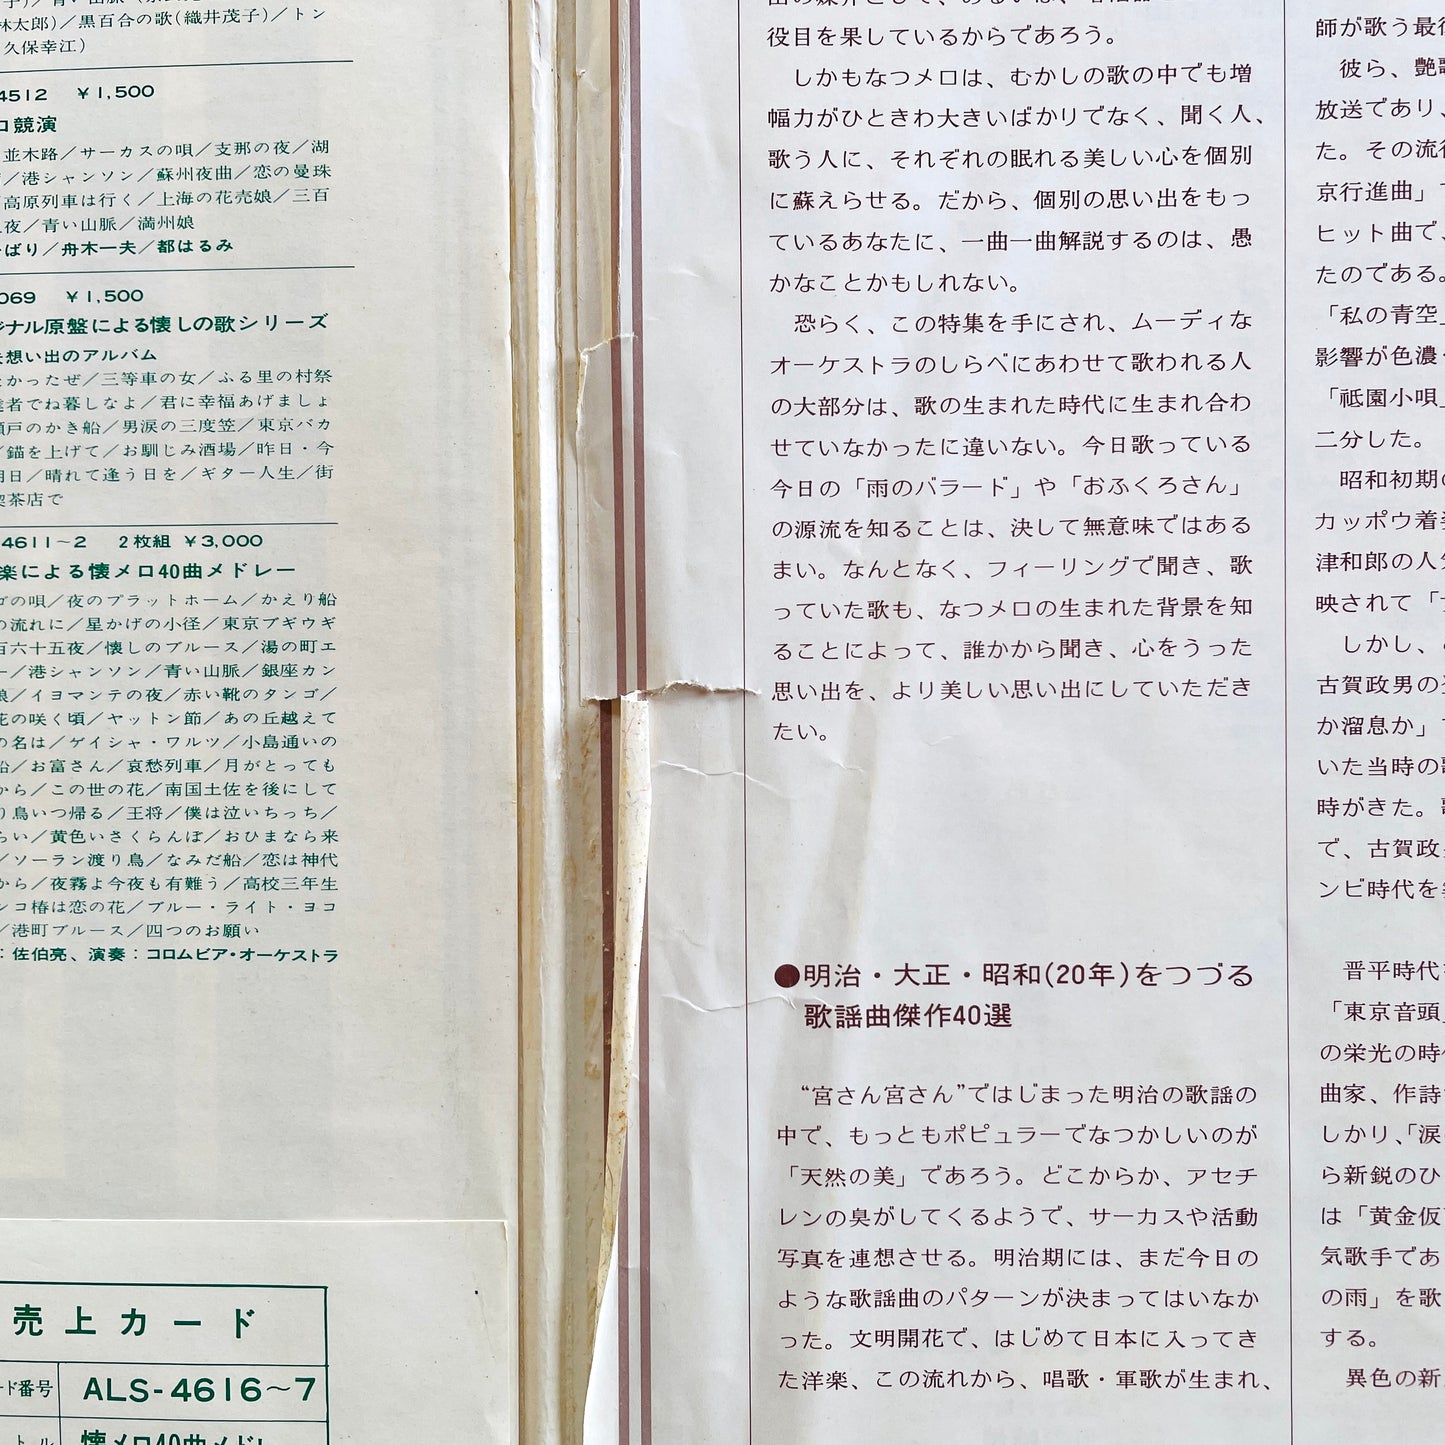 林太郎)／黒百合の歌(織井茂子)／トン
久保幸江)
4512 ￥1,500
ロ競演
並木路／サーカスの唄／支那の夜／湖
／港シャンソン／蘇州夜曲／恋の曼珠
高原列車は行く／上海の花売娘／三百
夜／青い山脈／満州娘
ばり／舟木一夫／都はるみ
069 ￥1,500
ジナル原盤による懐しの歌シリーズ
想い出のアルバム
かったぜ／三等車の女／ふる里の村祭
者でね暮しなよ／君に幸福あげましょ
瀬戸のかき船／男涙の三度笠／東京バカ
／錨を上げて／お馴じみ酒場／昨日・今
明日／晴れて逢う日を／ギター人生／街
喫茶店で
4611～2 2枚組 ￥3,000
楽による懐メロ40曲メドレー
の唄／夜のプラットホーム／かえり船
の流れに／星かげの小径／東京ブギウギ
百六十五夜／懐しのブルース／湯の町エ
ー／港シャンソン／青い山脈／銀座カン
娘／イヨマンテの夜／赤い靴のタンゴ／
花の咲く頃／ヤットン節／あの丘越えて
の名は／ゲイシャ・ワルツ／小島通いの
船／お富さん／哀愁列車／月がとっても
から／この世の花／南国土佐を後にして
り鳥いつ帰る／王将／僕は泣いちっち／
らい／黄色いさくらんぼ／おひまなら来
／ソーラン渡り鳥／なみだ船／恋は神代
から／夜霧よ今夜も有難う／高校三年生
ンコ椿は恋の花／ブルー・ライト・ヨコ
／港町ブルース／四つのお願い
：佐伯亮、演奏：コロムビア・オーケストラ
売上カード
ード番号 ALS-4616～7
トル 懐メロ40曲メドレ
役目を果しているからであろう。
しかもなつメロは、むかしの歌の中でも増
幅力がひときわ大きいばかりでなく、聞く人、
歌う人に、それぞれの眠れる美しい心を個別
に蘇えらせる。だから、個別の思い出をもっ
ているあなたに、一曲一曲解説するのは、愚
かなことかもしれない。
恐らく、この特集を手にされ、ムーディな
オーケストラのしらべにあわせて歌われる人
の大部分は、歌の生まれた時代に生まれ合わ
せていなかったに違いない。今日歌っている
今日の「雨のバラード」や「おふくろさん」
の源流を知ることは、決して無意味ではある
まい。なんとなく、フィーリングで聞き、歌
っていた歌も、なつメロの生まれた背景を知
ることによって、誰かから聞き、心をうった
思い出を、より美しい思い出にしていただき
たい。
●明治・大正・昭和(20年)をつづる
歌謡曲傑作40選
“宮さん宮さん”ではじまった明治の歌謡の
中で、もっともポピュラーでなつかしいのが
「天然の美」であろう。どこからか、アセチ
レンの臭がしてくるようで、サーカスや活動
写真を連想させる。明治期には、まだ今日の
ような歌謡曲のパターンが決まってはいなか
った。文明開花で、はじめて日本に入ってき
た洋楽、この流れから、唱歌・軍歌が生まれ、
師が歌う最
彼ら、艶
放送であり、
た。その流行
京行進曲」
ヒット曲で、
たのである。
「私の青空」
影響が色濃
「祇園小唄」
二分した。
昭和初期の
カッポウ着
津和郎の人
映されて「
しかし、
古賀政男の
か溜息か」
いた当時の
時がきた。
で、古賀政
ンビ時代を
晋平時代
「東京音頭」
の栄光の時
曲家、作詩
しかり、「涙
ら新鋭のひ
は「黄金仮
気歌手であ
の雨」を歌
する。
異色の新